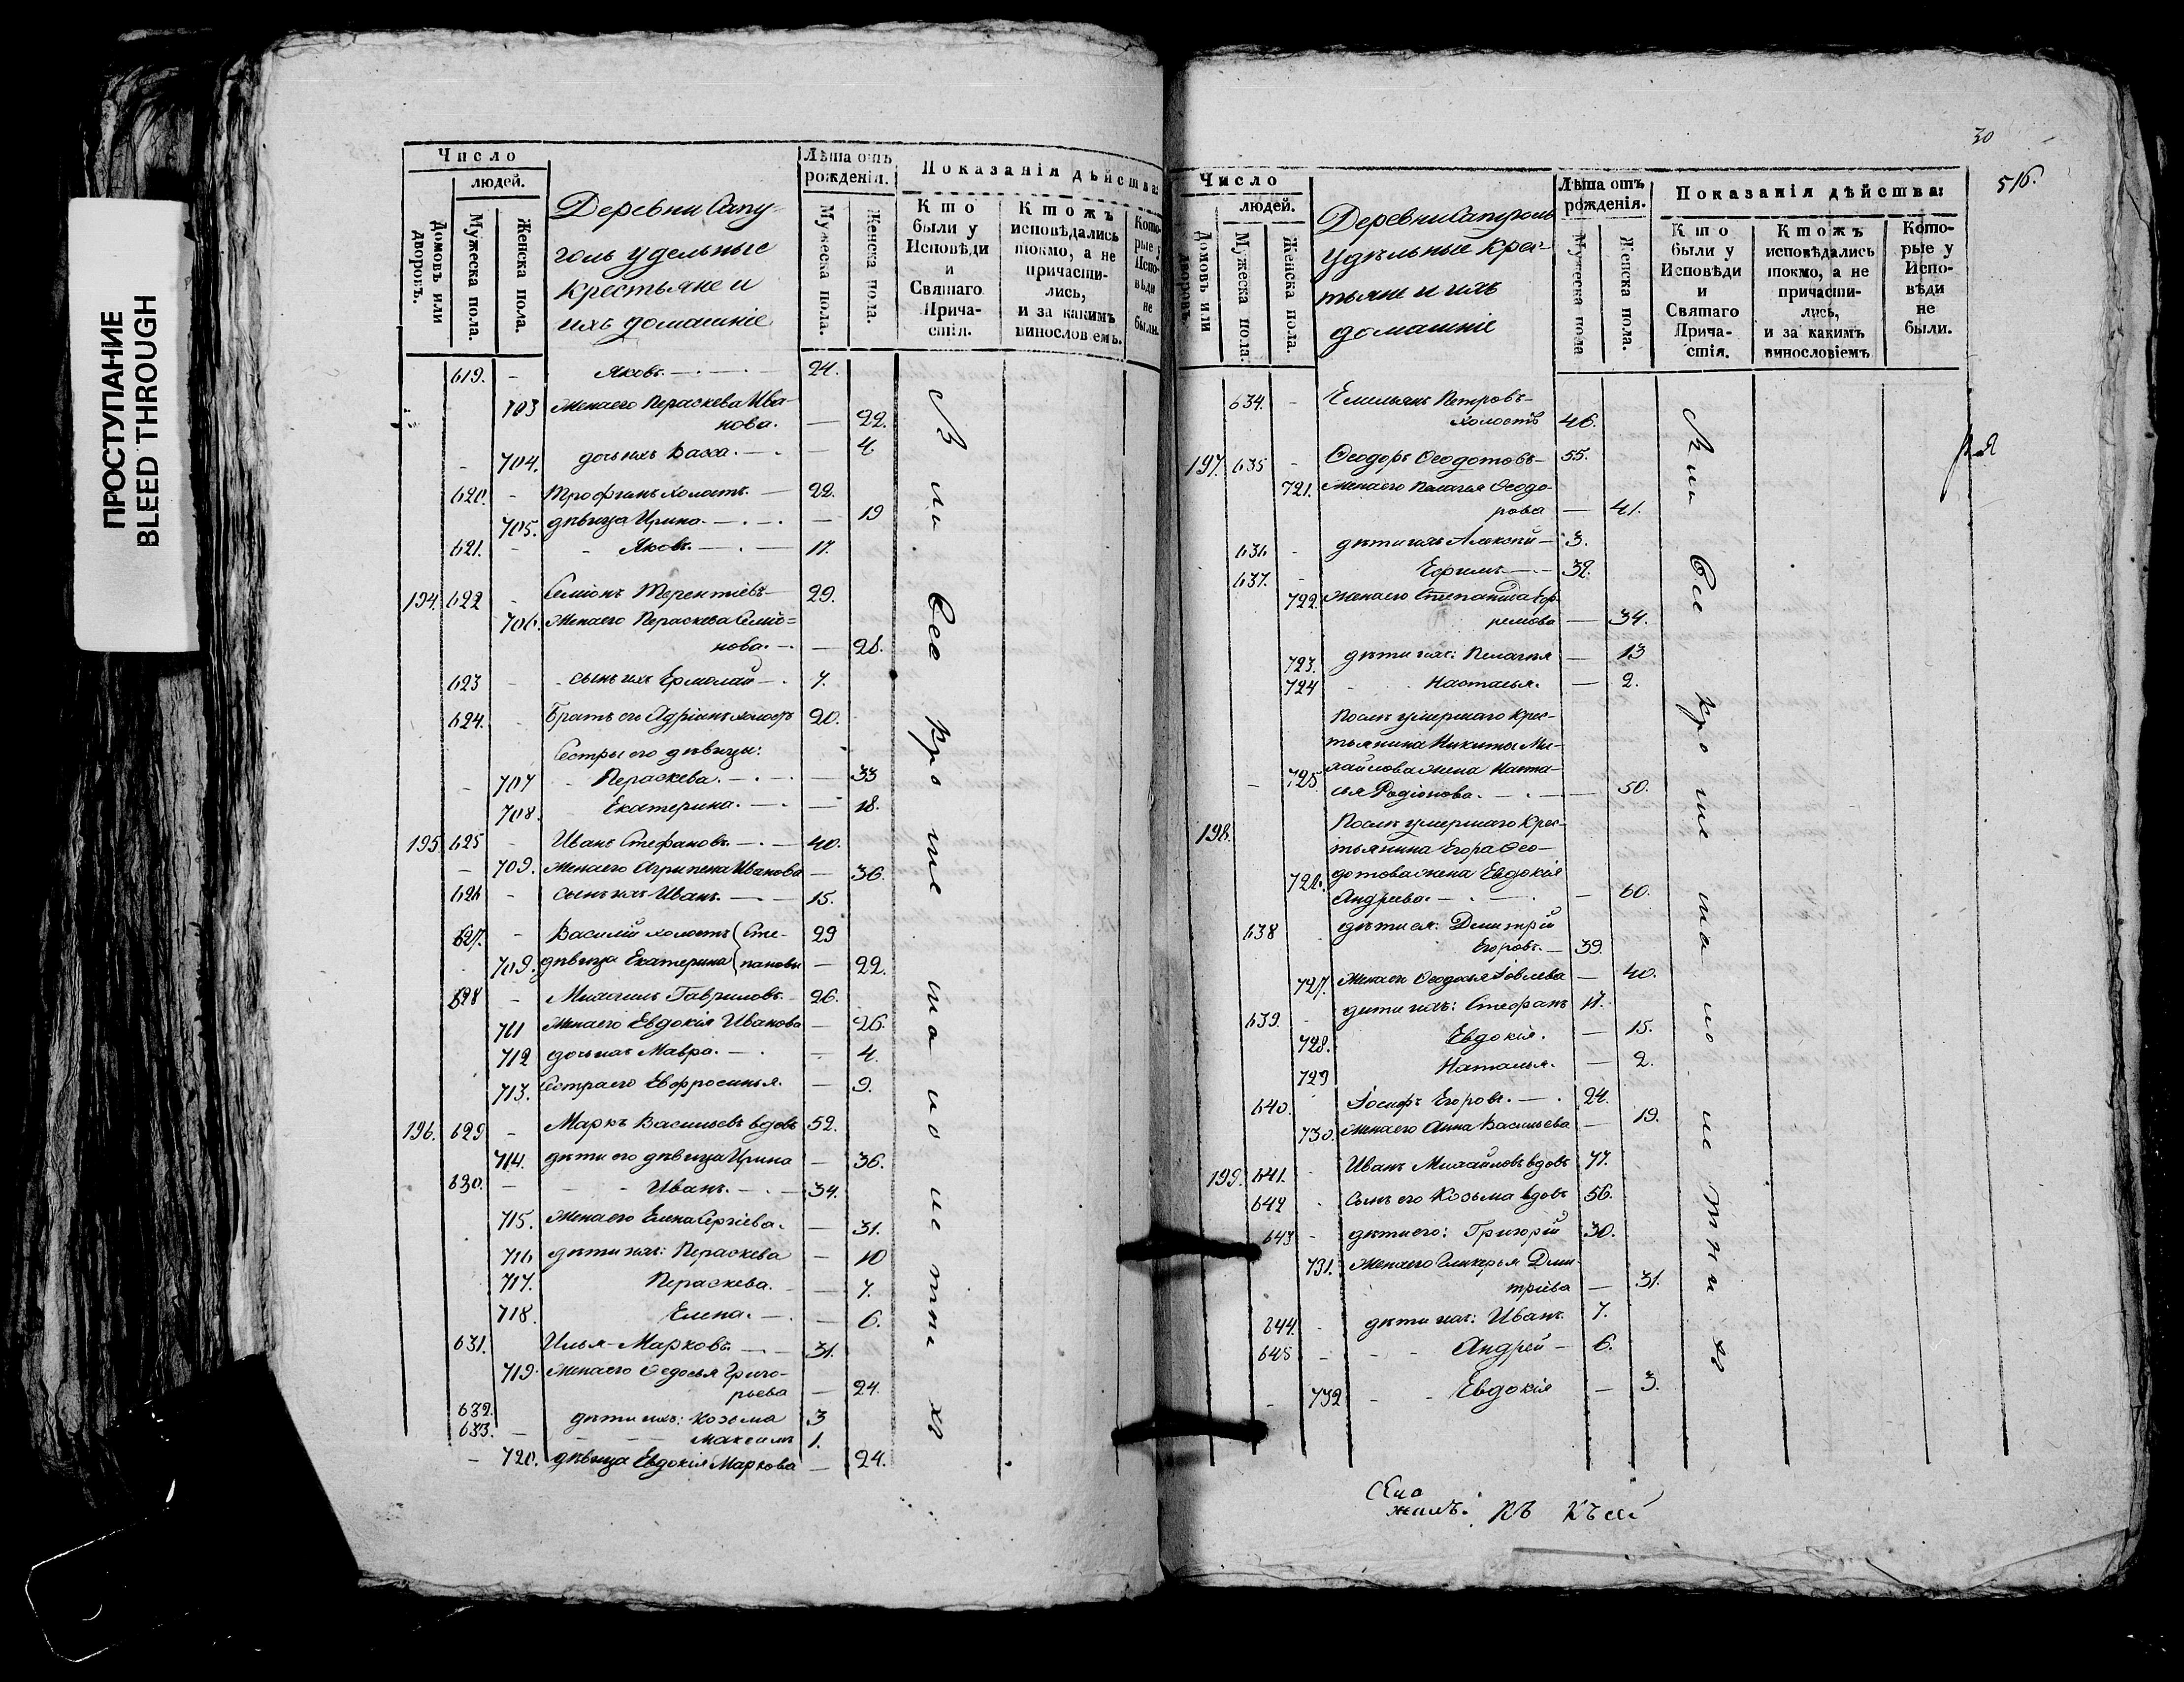 ПРОСТУПАНИЕ
BLEED THROUGH
Число
людей.
Домовъ или дворовъ.
Мужеска пола.
Женска пола.
Деревни Сапу-
голь удельные
крестьяне и
ихъ домашніе
Лѣта отъ
рожденія.
Мужеска пола.
Женска пола.
Показанія дѣйства:
Кто
были у
Исповѣди
и
Святаго
Прича-
стія.
Ктожъ
исповѣдались
токмо, а не
причасти-
лись,
и за какимъ
винословіемъ.
Кото-
рые у
Испо-
вѣди
не
были.
619. - Яковъ. 24.
703 Жена его Пераскева Ива-
нова. — 22.
704. дочь ихъ Васса. — 4
620. - Трофимъ холостъ. — 22.
705. дѣвица Ирина. — 19
621. - Яковъ. — 17.
194. 622 - Семіонъ Терентіевъ — 29.
706. Жена его Пераскева Семіо=
нова. — 28.
623 - сынъ ихъ Ермолай — 7.
624. Братъ его Адріанъ холостъ 20.
Сестры его дѣвицы:
707 - Пераскева. — 33
708. Екатерина. — 18.
195. 625 - Иванъ Стефановъ. — 40.
709. Жена его Агрипена Иванова — 36.
626 - сынъ ихъ Иванъ. — 15.
627. - Василій холостъ (Сте- 29
709. дѣвица Екатерина (пановы — 22.
628 - Михаилъ Гавриловъ. 26.
711 Жена его Евдокія Иванова — 26.
712 дочь ихъ Мавра. — 4.
713. Сестра его Евфросинья. — 9.
196. 629 - Маркъ Васильевъ вдовъ 52.
714. дѣти его дѣвица Ирина — 36.
630. - Иванъ. — 34.
715. Жена его Елена Сергіева. — 31.
716 дѣти ихъ: Пераскева — 10
717. Пераскева. — 7.
718. Елена. — 6.
631. Илья Марковъ. — 31.
719. Жена его Ѳедосья Григо-
рьева — 24.
632. дѣти ихъ: Козьма 3
633. - Максимъ 1.
- 720. дѣвица Евдокія Маркова — 24.
Все кроме малолетних
30
516.
Число
людей.
Домовъ или дворовъ
Мужеска пола.
Женска пола.
Деревни Сапуголь
Удѣльные крес-
тьяне и ихъ
домашніе
Лѣта отъ
рожденія.
Мужеска пола
Женска пола.
Показанія дѣйства:
Кто
были у
Исповѣди
и
Святаго
Прича-
стія.
Ктожъ
исповѣдались
токмо, а не
причасти-
лись,
и за какимъ
винословіемъ
Кото-
рые у
Испо-
вѣди
не
были.
634. - Емельянъ Петровъ-
холостъ 46.
197. 635 - Ѳеодоръ Ѳеодотовъ — 55.
721. Жена его Пелагея Ѳеодо-
рова — 41.
636 - дѣти ихъ Алексѣй — 3.
637. - Ефимъ — 32.
722. Жена его Степанида Еф-
ремова — 34.
723. дѣти ихъ: Пелагея — 13
724 Настасья. — 2.
Послѣ умершаго крес-
тьянина Никиты Ми-
- 725. хайлова жена Наста-
сья Родіонова. — 50.
198. Послѣ умершаго крес-
тьянина Егора Ѳео-
726. дотова жена Евдокія
Андреева. — 60.
638 дѣти ея: Дмитрій
Егоровъ. — 39.
727. Жена его Ѳеодосья Іовлева — 40.
639. - дѣти ихъ: Стефанъ 17.
728. Евдокія. — 15.
729 Наталья. — 2.
640. Іосифъ Егоровъ. — 24.
730. Жена его Анна Васильева — 19.
199. 641. Иванъ Михайловъ вдовъ 77.
642 Сынъ его Козьма вдовъ 56.
643 - дѣти его: Григорій 30.
731. Жена его Гликерья Дми-
тріева — 31.
644. - дѣти ихъ: Иванъ. 7.
645 - Андрей — 6.
- 732 - Евдокія — 3.
Все кроме малолетних